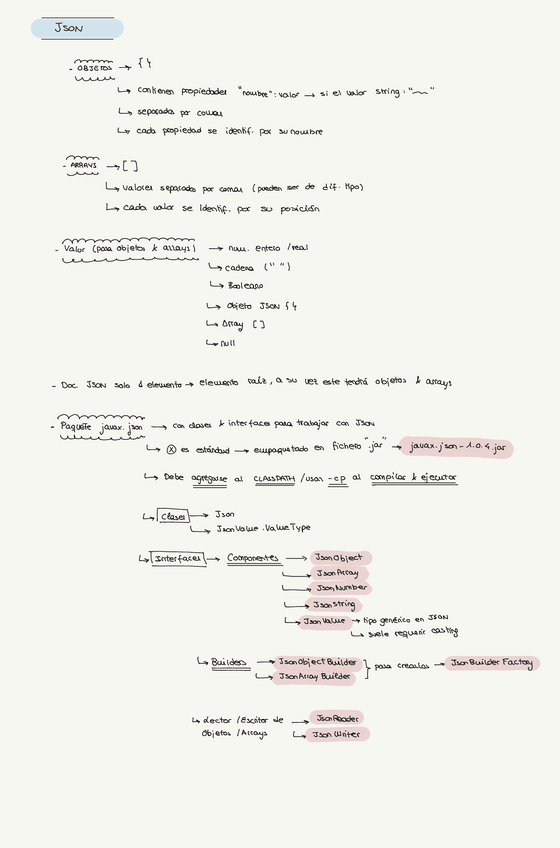 JSON
- OBJETOS → { }
↳ contienen propiedades "nombre": valor → si el valor string: "~~"
↳ separadas por comas
↳ cada propiedad se identif. por su nombre
- ARRAYS → [ ]
↳ valores separados por comas (pueden ser de dif. tipo)
↳ cada valor se identif. por su posición
- Valor (para objetos & arrays) → num. entero / real
↳ cadena (" ")
↳ Booleano
↳ Objeto JSON { }
↳ Array [ ]
↳ null
- Doc. JSON solo 1 elemento → elemento raíz, a su vez este tendrá objetos & arrays
- Paquete javax.json → con clases & interfaces para trabajar con JSON
↳ ⓧ es estándard → empaquetado en fichero ".jar" → javax.json-1.0.4.jar
↳ Debe agregarse al CLASSPATH / usar -cp al compilar & ejecutar
↳ Clases → Json
↳ JsonValue.ValueType
↳ Interfaces → Componentes → JsonObject
↳ JsonArray
↳ JsonNumber
↳ JsonString
↳ JsonValue → tipo genérico en JSON
↳ suele requerir casting
↳ Builders → JsonObjectBuilder } para crearlos → JsonBuilderFactory
↳ JsonArrayBuilder
↳ Lector / Escritor de Objetos / Arrays → JsonReader
↳ JsonWriter